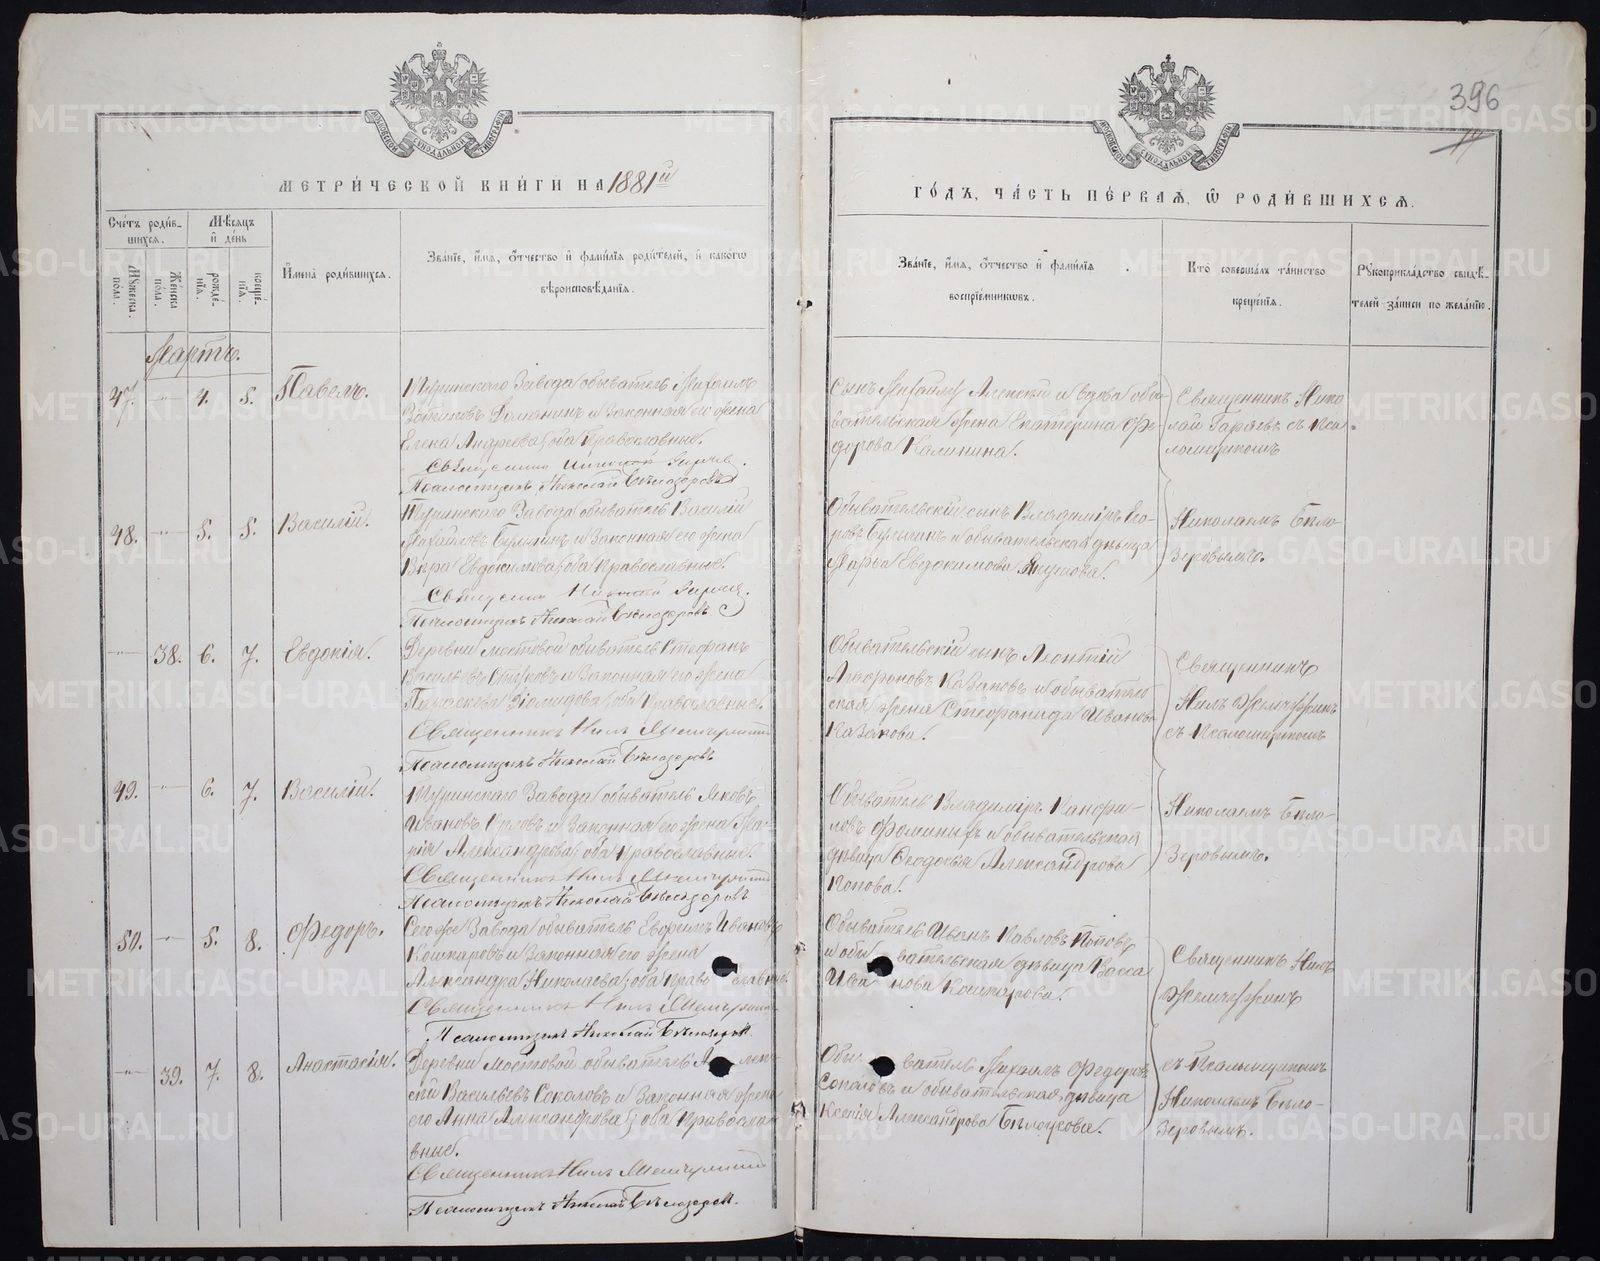 396
МОСКОВСКОЙ СѴНОДАЛЬНОЙ ТИПОГРАФІИ
МОСКОВСКОЙ СѴНОДАЛЬНОЙ ТИПОГРАФІИ
МЕТРИ́ЧЕСКОЙ КНИ́ГИ НА 1881й
ГО́ДЪ, ЧА́СТЬ ПЕ́РВАѦ, Ѿ РОДИ́ВШИХСѦ.
Сче́тъ роди́в-
шихсѧ.
Мѣ́сѧцъ
и҆ де́нь
Мꙋ́жеска
по́ла.
Же́нска
по́ла.
рожде́-
нїѧ.
креще́-
нїѧ.
И҆мена̀ роди́вшихсѧ.
Зва́нїе, и҆́мѧ, ѻ҆́тчество и҆ фами́лїѧ роди́телей, и҆ како́гѡ
вѣроисповѣ́данїѧ.
Зва́нїе, и҆́мѧ, ѻ҆́тчество и҆ фами́лїѧ
воспрїе́мникѡвъ.
Кто̀ соверша́лъ та́инство
креще́нїѧ.
Рꙋкоприкла́дство свидѣ́-
телей за́писи по жела́нїю.
Мартъ.
47. 4. 5. Павелъ.
Туринскаго Завода обыватель Михаилъ
и законная его жена
Елена Андреева, оба Православные.
Священникъ Николай
Псаломщикъ Николай Бѣлозеровъ
Сынъ Михаилъ Алексѣй и вдова обы-
вательская жена Екатерина Ѳе-
дорова Калинина.
Священникъ Нико
лай съ Пса
ломщикомъ
48. 5. 5. Василій.
Туринскаго Завода обыватель Василій
Михайловъ и законная его жена
Вѣра Евдокимова, оба Православные.
Священникъ Николай
Псаломщикъ Николай Бѣлозеровъ
Обывательскій сынъ Владиміръ Его-
ровъ и обывательская дѣвица
Марья Евдокимова
Николаемъ Бѣло-
зеровымъ.
38. 6. 7. Евдокія.
Деревни Мостовой обыватель Стефанъ
Васильевъ и законная его жена
Диомидова, оба Православные.
Священникъ Нилъ
Псаломщикъ Николай Бѣлозеровъ
Обывательскій сынъ Леонтій
Казаковъ и обыватель
ская жена Стефанида Иванова
Казакова.
Священникъ
Нилъ
съ Псаломщикомъ
49. 6. 7. Василій.
Туринскаго Завода обыватель Яковъ
Ивановъ Орловъ и законная его жена Ма-
рія Александрова, оба Православные.
Священникъ Нилъ
Псаломщикъ Николай Бѣлозеровъ
Обыватель Владиміръ Панфи-
ловъ Ѳоминыхъ и обывательская
дѣвица Ѳеодосья Александрова
Попова.
Николаемъ Бѣло-
зеровымъ.
50. 5. 8. Ѳедоръ.
Сегоже Завода обыватель Евфимъ Ивановъ
Кошкаровъ и законная его жена
Александра Николаева, оба Православные.
Священникъ Нилъ
Псаломщикъ Николай Бѣлозеровъ
Обыватель Иванъ Павловъ Поповъ
и обывательская дѣвица Васса
Иванова Кошкарова.
Священникъ Нилъ
39. 7. 8. Анастасія.
Деревни Мостовой обыватель Алек
сѣй Васильевъ Соколовъ и законная жена
его Анна Александрова, оба Православ
ные.
Священникъ Нилъ
Псаломщикъ Николай Бѣлозеровъ.
Обыватель Михаилъ Ѳедоровъ
Соколовъ и обывательская дѣвица
Ксенія Александрова Бѣлоусова.
съ Псаломщикомъ
Николаемъ Бѣло-
зеровымъ.
METRIKI.GASO-URAL.RU